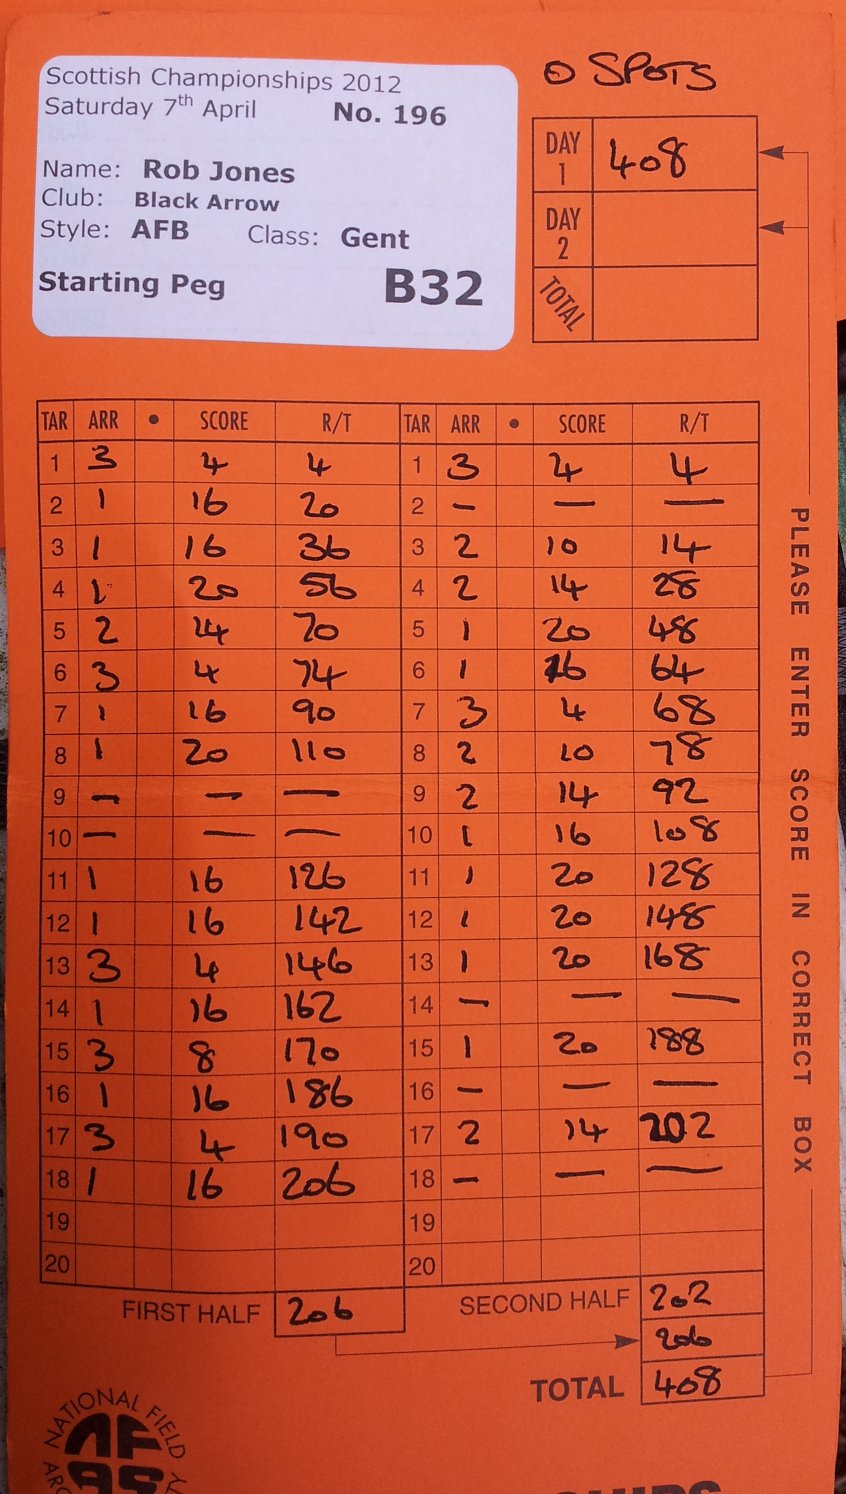 O SPOTS
Scottish Championships 2012
Saturday 7th April No. 196
Name: Rob Jones
Club: Black Arrow
Style: AFB Class: Gent
Starting Peg B32
DAY 1 408
DAY 2
TOTAL
TAR ARR • SCORE R/T TAR ARR • SCORE R/T
1 3 4 4 1 3 4 4
2 1 16 20 2 - - -
3 1 16 36 3 2 10 14
4 1 20 56 4 2 14 28
5 2 14 70 5 1 20 48
6 3 4 74 6 1 16 64
7 1 16 90 7 3 4 68
8 1 20 110 8 2 10 78
9 - - - 9 2 14 92
10 - - - 10 1 16 108
11 1 16 126 11 1 20 128
12 1 16 142 12 1 20 148
13 3 4 146 13 1 20 168
14 1 16 162 14 - - -
15 3 8 170 15 1 20 188
16 1 16 186 16 - - -
17 3 4 190 17 2 14 202
18 1 16 206 18 - - -
19 19
20 20
FIRST HALF 206 SECOND HALF 202
206
TOTAL 408
PLEASE ENTER SCORE IN CORRECT BOX
NATIONAL FIELD